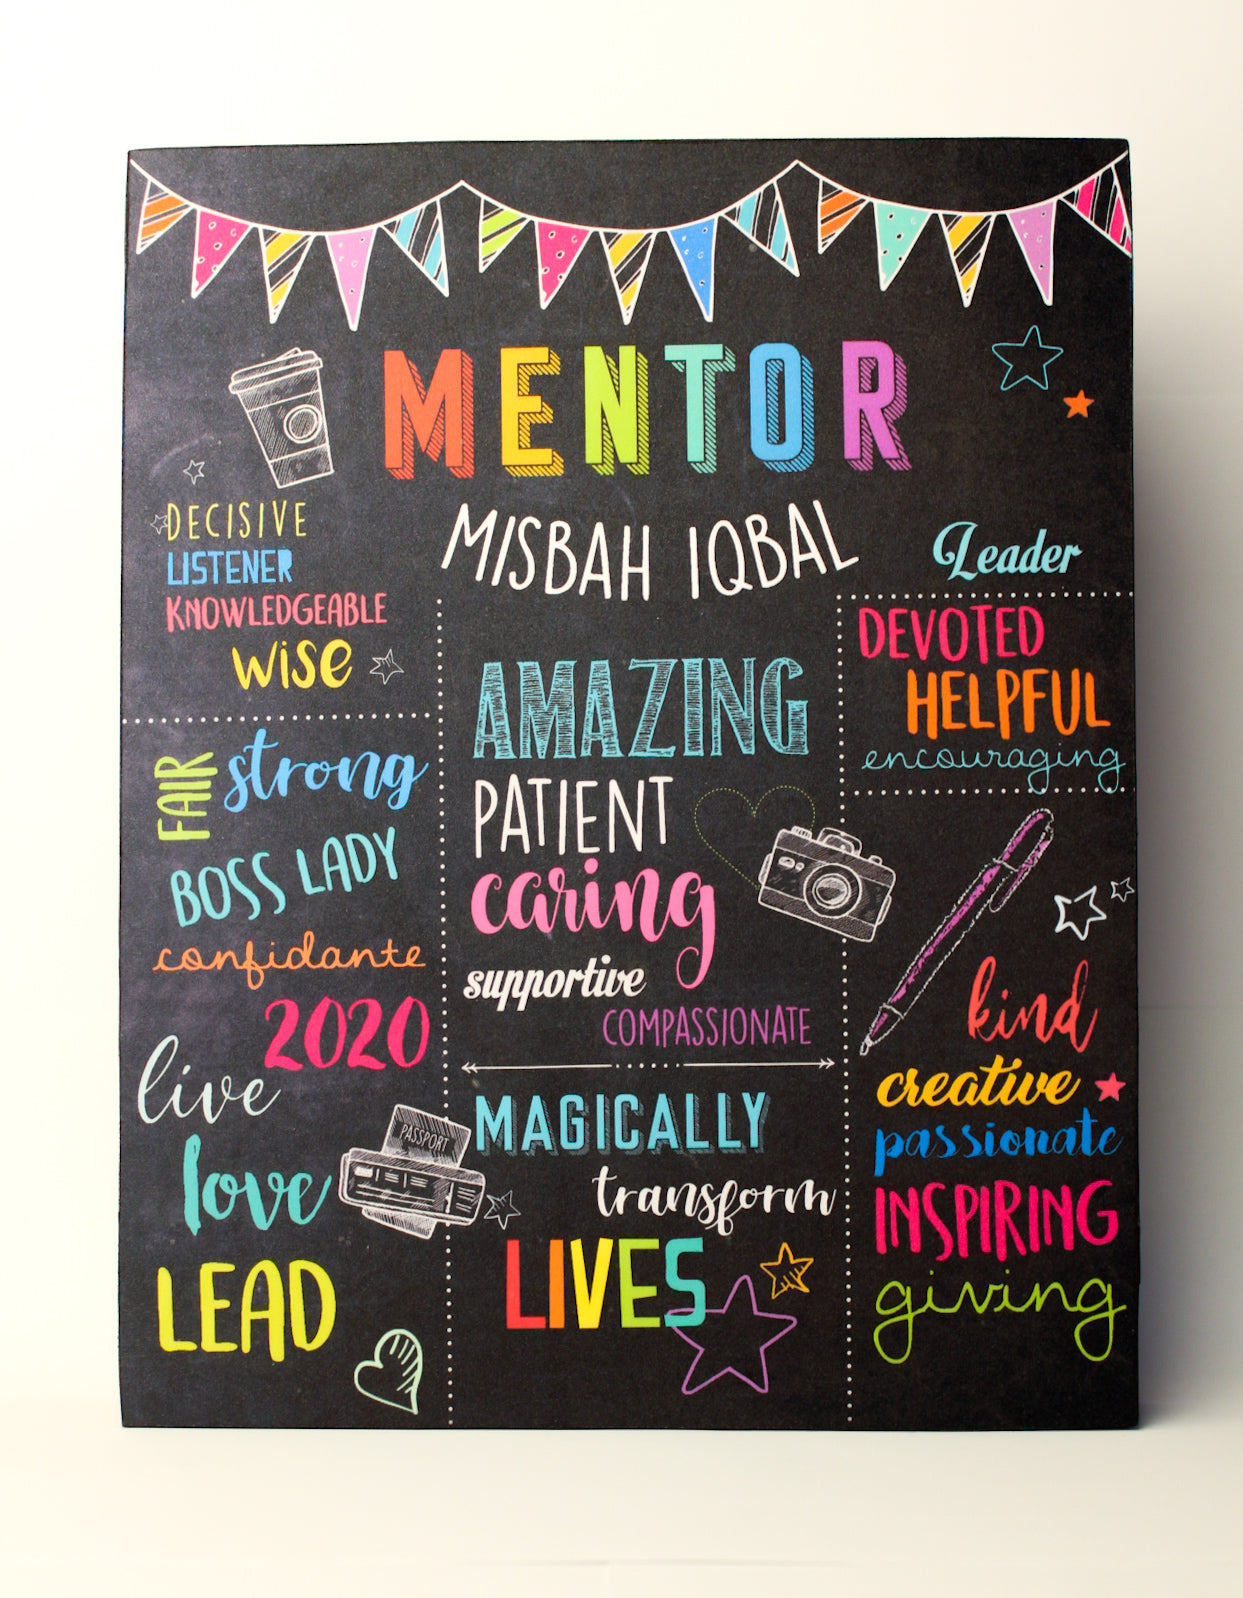 MENTOR
MISBAH IQBAL
DECISIVE
LISTENER
KNOWLEDGEABLE
WISE
FAIR
strong
BOSS LADY
confidante
2020
live
love
LEAD
PASSPORT
AMAZING
PATIENT
caring
supportive
COMPASSIONATE
MAGICALLY
transform
LIVES
Leader
DEVOTED
HELPFUL
encouraging
kind
creative
passionate
INSPIRING
giving